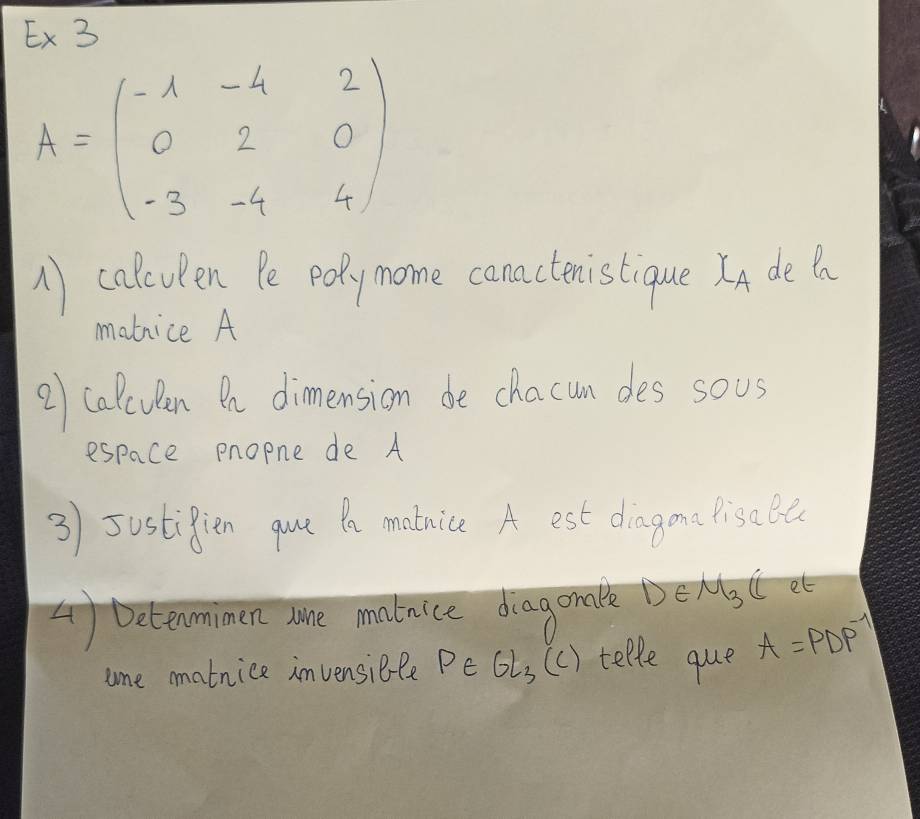 Ex 3
-1 -4 2
A = 0 2 0
-3 -4 4
1) calculer le polynome caracteristique χA de la
matrice A
2) Calculer la dimension de chacun des sous
espace propre de A
3) Justifier que la matrice A est diagonalisable
4) Determiner une matrice diagonale D ∈ M3 ℂ et
une matrice inversible P ∈ GL3 (C) telle que A = PDP⁻¹